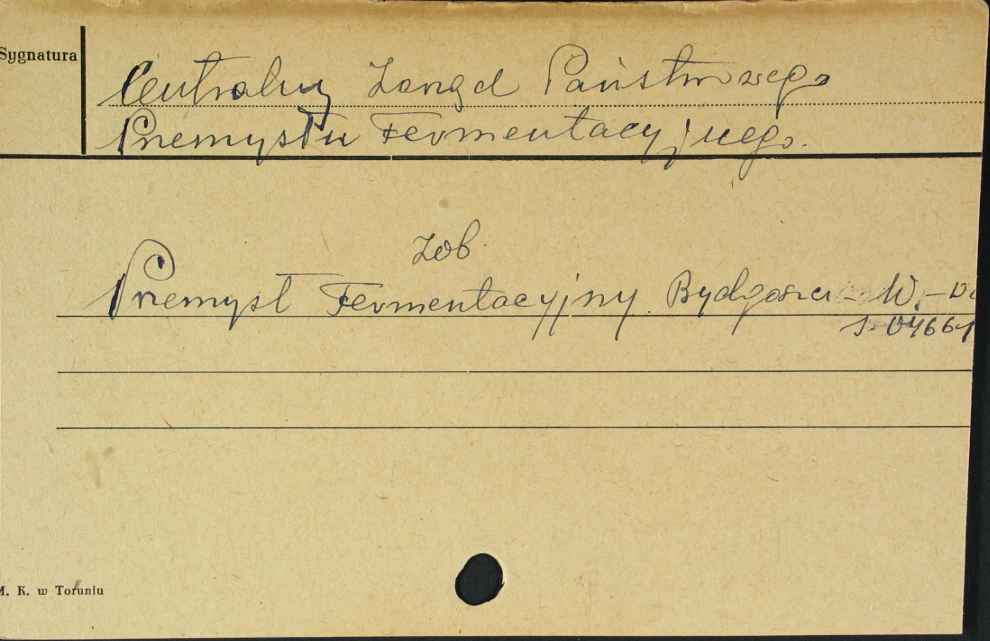 Sygnatura
Centralny Zarząd Państwowego
Przemysłu Fermentacyjnego.
Zob
Przemysł Fermentacyjny. Bydgoszcz - W. -
M. K. w Toruniu